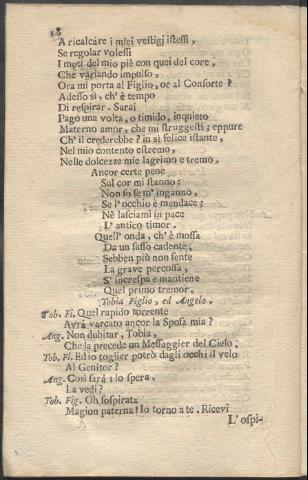 18
A ricalcare i miei vestigj istessi,
Se regolar volessi
I moti del mio piè con quei del core,
Che variando impulso,
Ora mi porta al Figlio, or al Consorte?
Adesso sì, ch' è tempo
Di respirar. Sarai
Pago una volta, o timido, inquieto
Materno amor, che mi struggesti; eppure
Ch' il crederebbe? in sì felice istante,
Nel mio contento estremo,
Nelle dolcezze mie lagrimo e tremo.
Ancor certe pene
Sul cor mi stanno:
Non so se m' inganno,
Se l' occhio è mendace;
Nè lasciami in pace
L' antico timor.
Quell' onda, ch' è mossa
Da un sasso cadente,
Sebben più non sente
La grave percossa,
S' increspa e mantiene
Quel primo tremor.
Tobia Figlio, ed Angelo.
Tob. Fi. Quel rapido torrente
Avrà varcato ancor la Sposa mia?
Ang. Non dubitar, Tobia,
Che la precede un Messaggier del Cielo.
Tob. Fi. Ed io toglier potrò dagli occhi il velo
Al Genitor?
Ang. Così sarà; lo spera.
La vedi?
Tob. Fig. Oh sospirata
Magion paterna! Io torno a te. Ricevi
L' ospi-